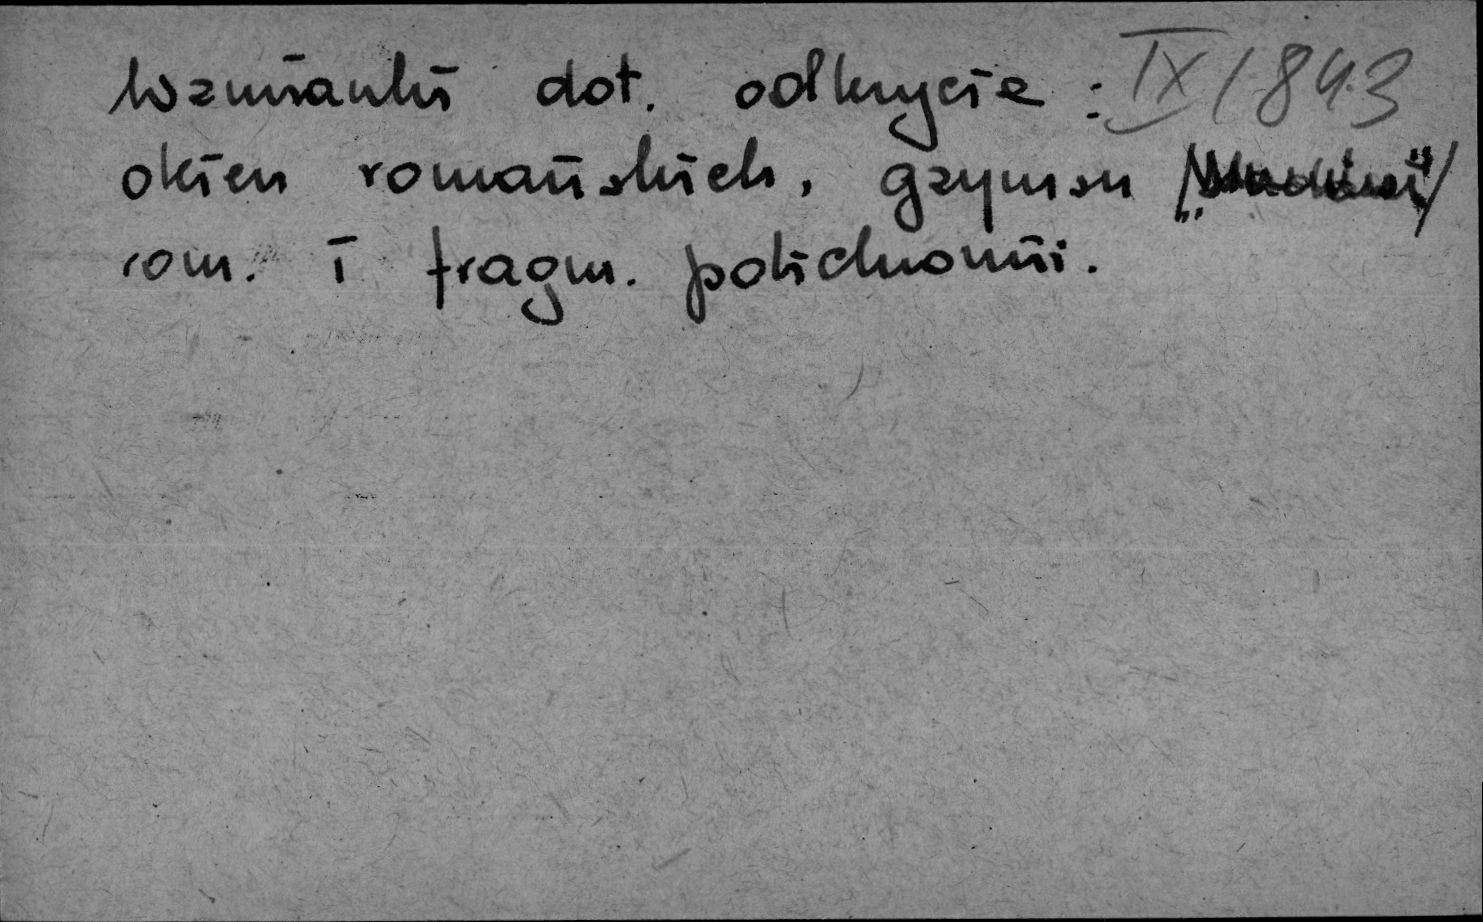 Wzmianki dot. odkrycia : IX/843
okien romańskich, gzymsu
rom. i fragm. polichromii.